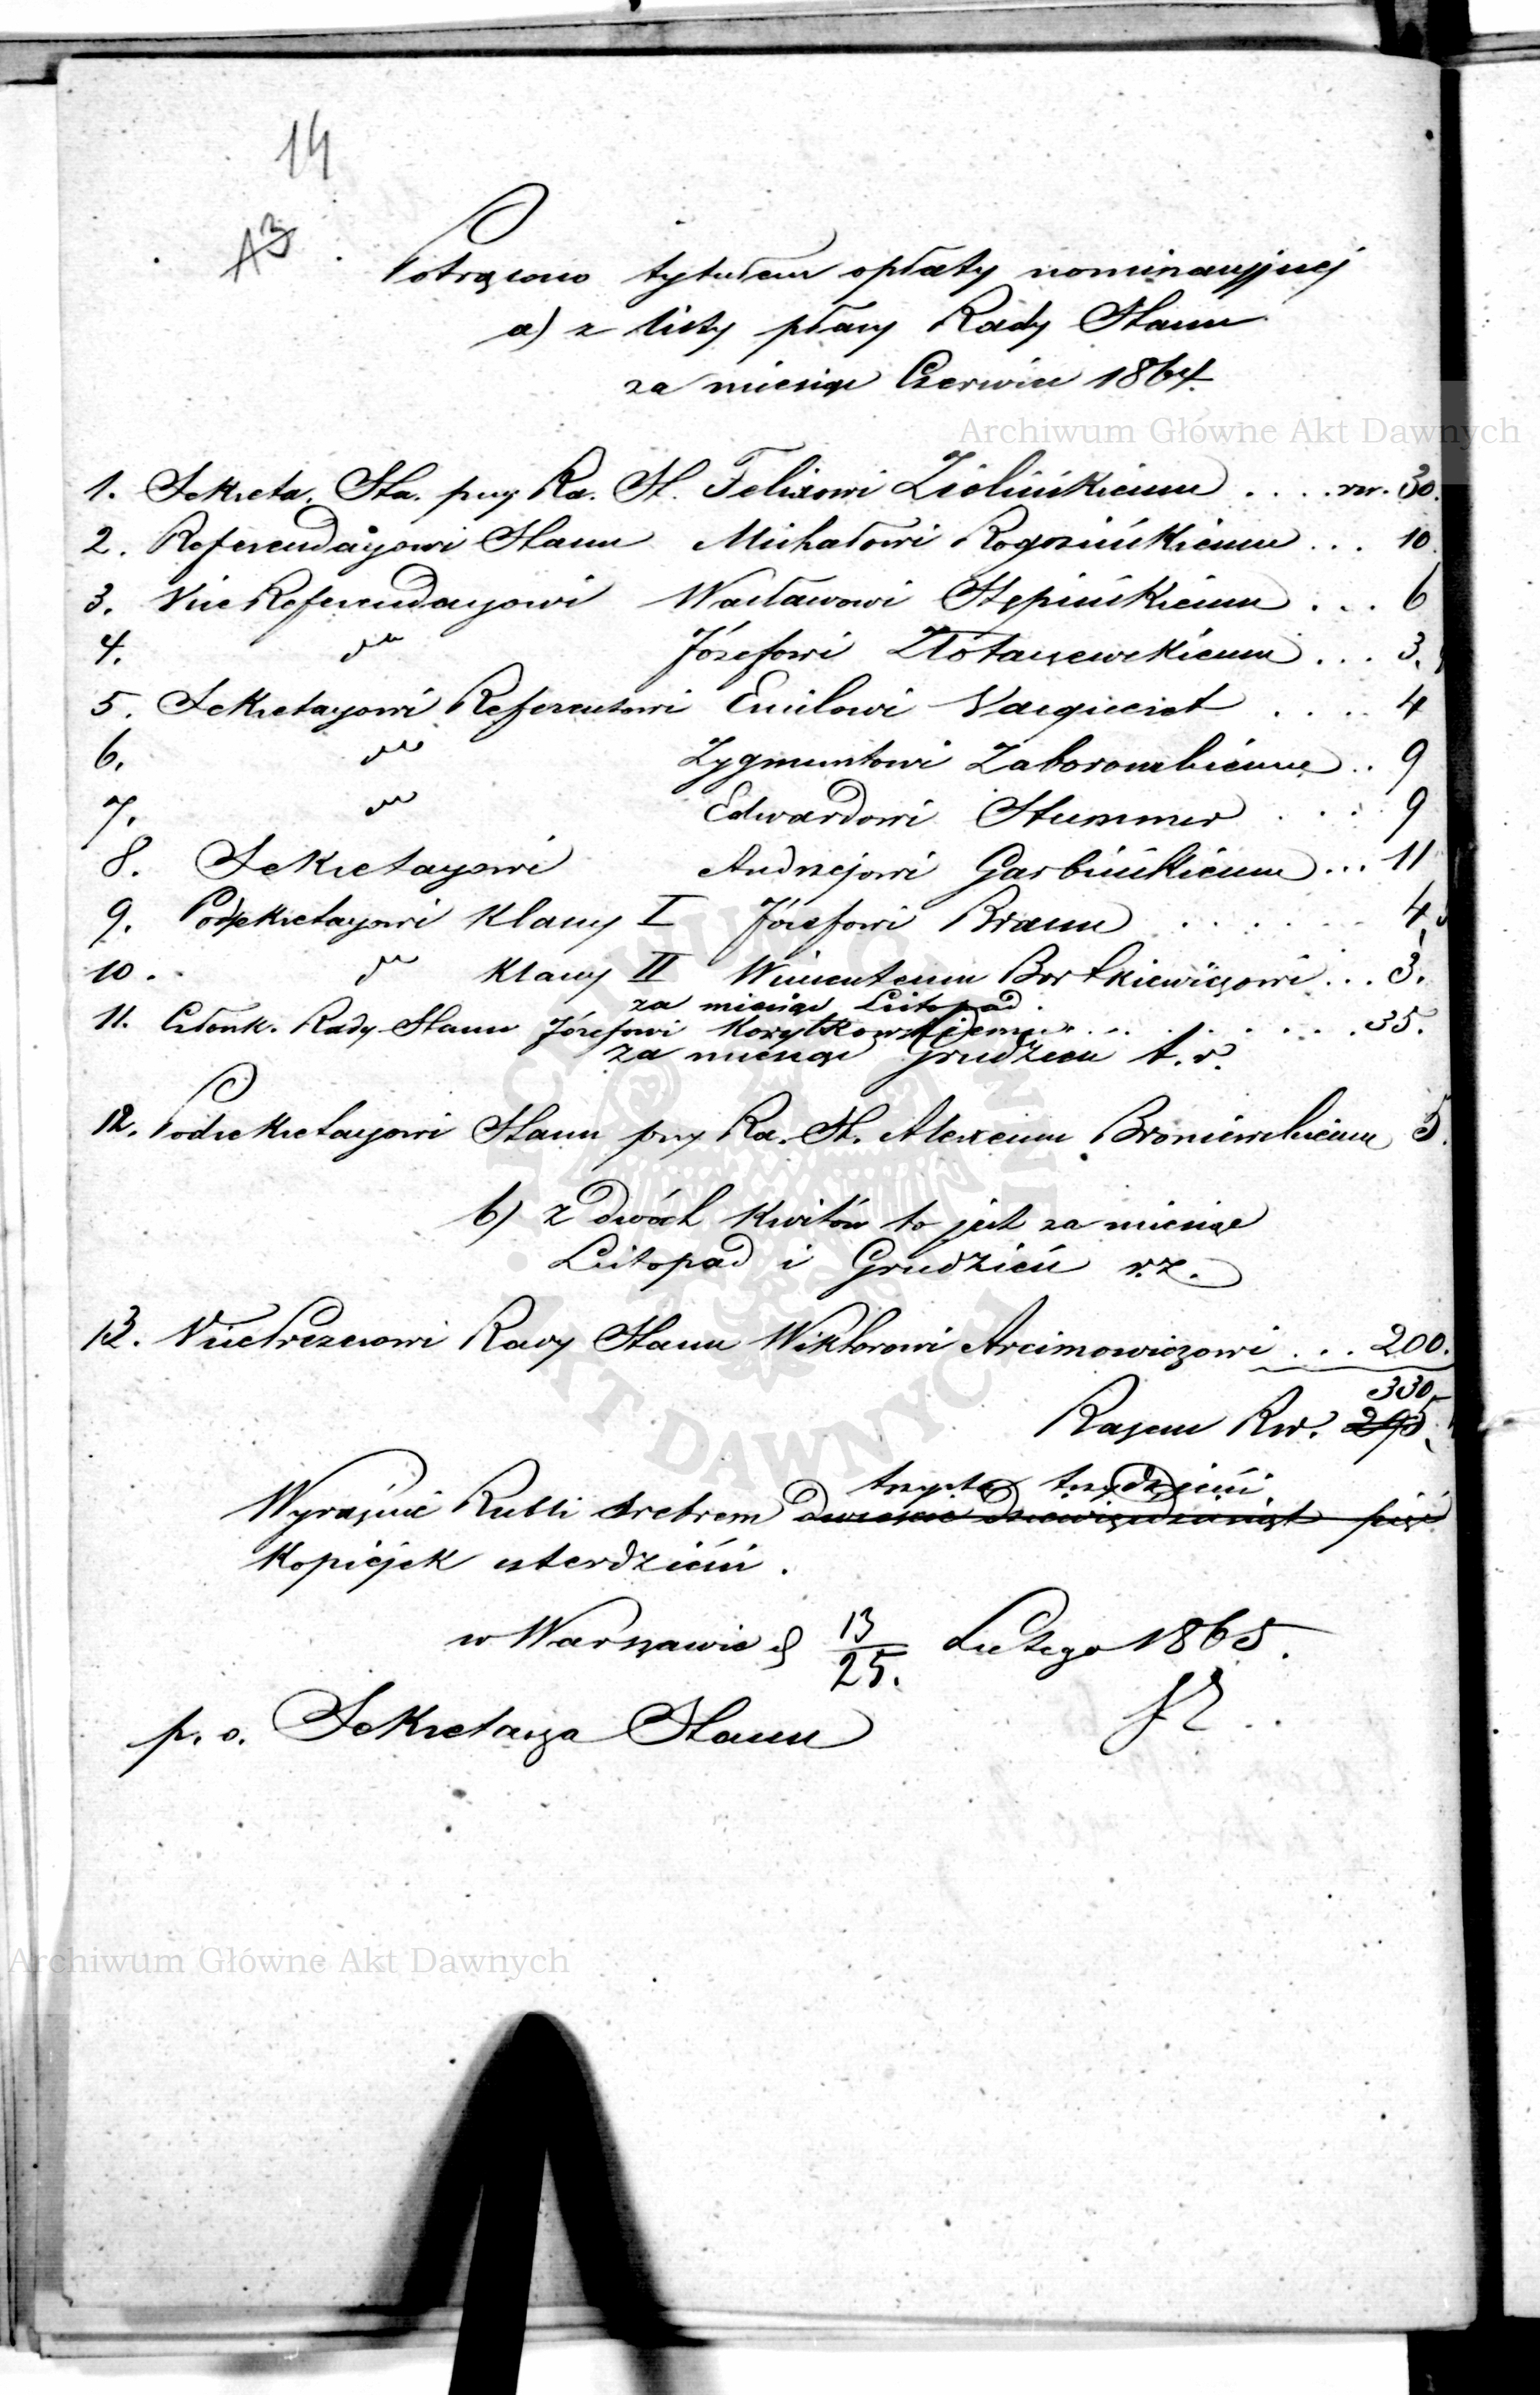 14
Potrącono tytułem opłaty nominacyjnej
a) z listy płacy Rady Stanu
za miesiąc Czerwiec 1864.
Archiwum Główne Akt Dawnych
1. Sekreta. Sta. przy Ra. St. Felixowi Zielińskiemu .... rsr. 30.
2. Referendarzowi Stanu Michałowi Rogozińskiemu ... 10.
3. Vice Referendarzowi Wacławowi Stępińskiemu ... 6
4. dto Józefowi Złotaszewskiemu ... 3.
5. Sekretarzowi Referentowi Emilowi .... 4
6. dto Zygmuntowi Zaborowskiemu .. 9
7. dto Edwardowi Stummer ... 9
8. Sekretarzowi Andrzejowi Garbińskiemu ... 11
9. Podsekretarzowi Klassy I Józefowi Braun ...... 4
10. dto Klassy II Wincentemu Bortkiewiczowi ... 3.
za miesiąc Listopad
11. Członk. Rady Stanu Józefowi Korytkowskiemu ........ 35.
za miesiąc Grudzień t.r.
12. Podsekretarzowi Stanu przy Ra. St. Alexemu Broniewskiemu 5.
b) z dwóch Kwitów to jest za miesiąc
Listopad i Grudzień r.z.
13. Vice Prezesowi Rady Stanu Wiktorowi Arcimowiczowi ... 200.
330
Razem Rsr. 295
trzysta trzydzieści
Wyraźnie Rubli srebrem dwieście dziewięćdziesiąt pięć
Kopiejek czterdzieści.
w Warszawie d 13/25. Lutego 1865.
p. o. Sekretarza Stanu
Archiwum Główne Akt Dawnych
ARCHIWUM GŁÓWNE AKT DAWNYCH